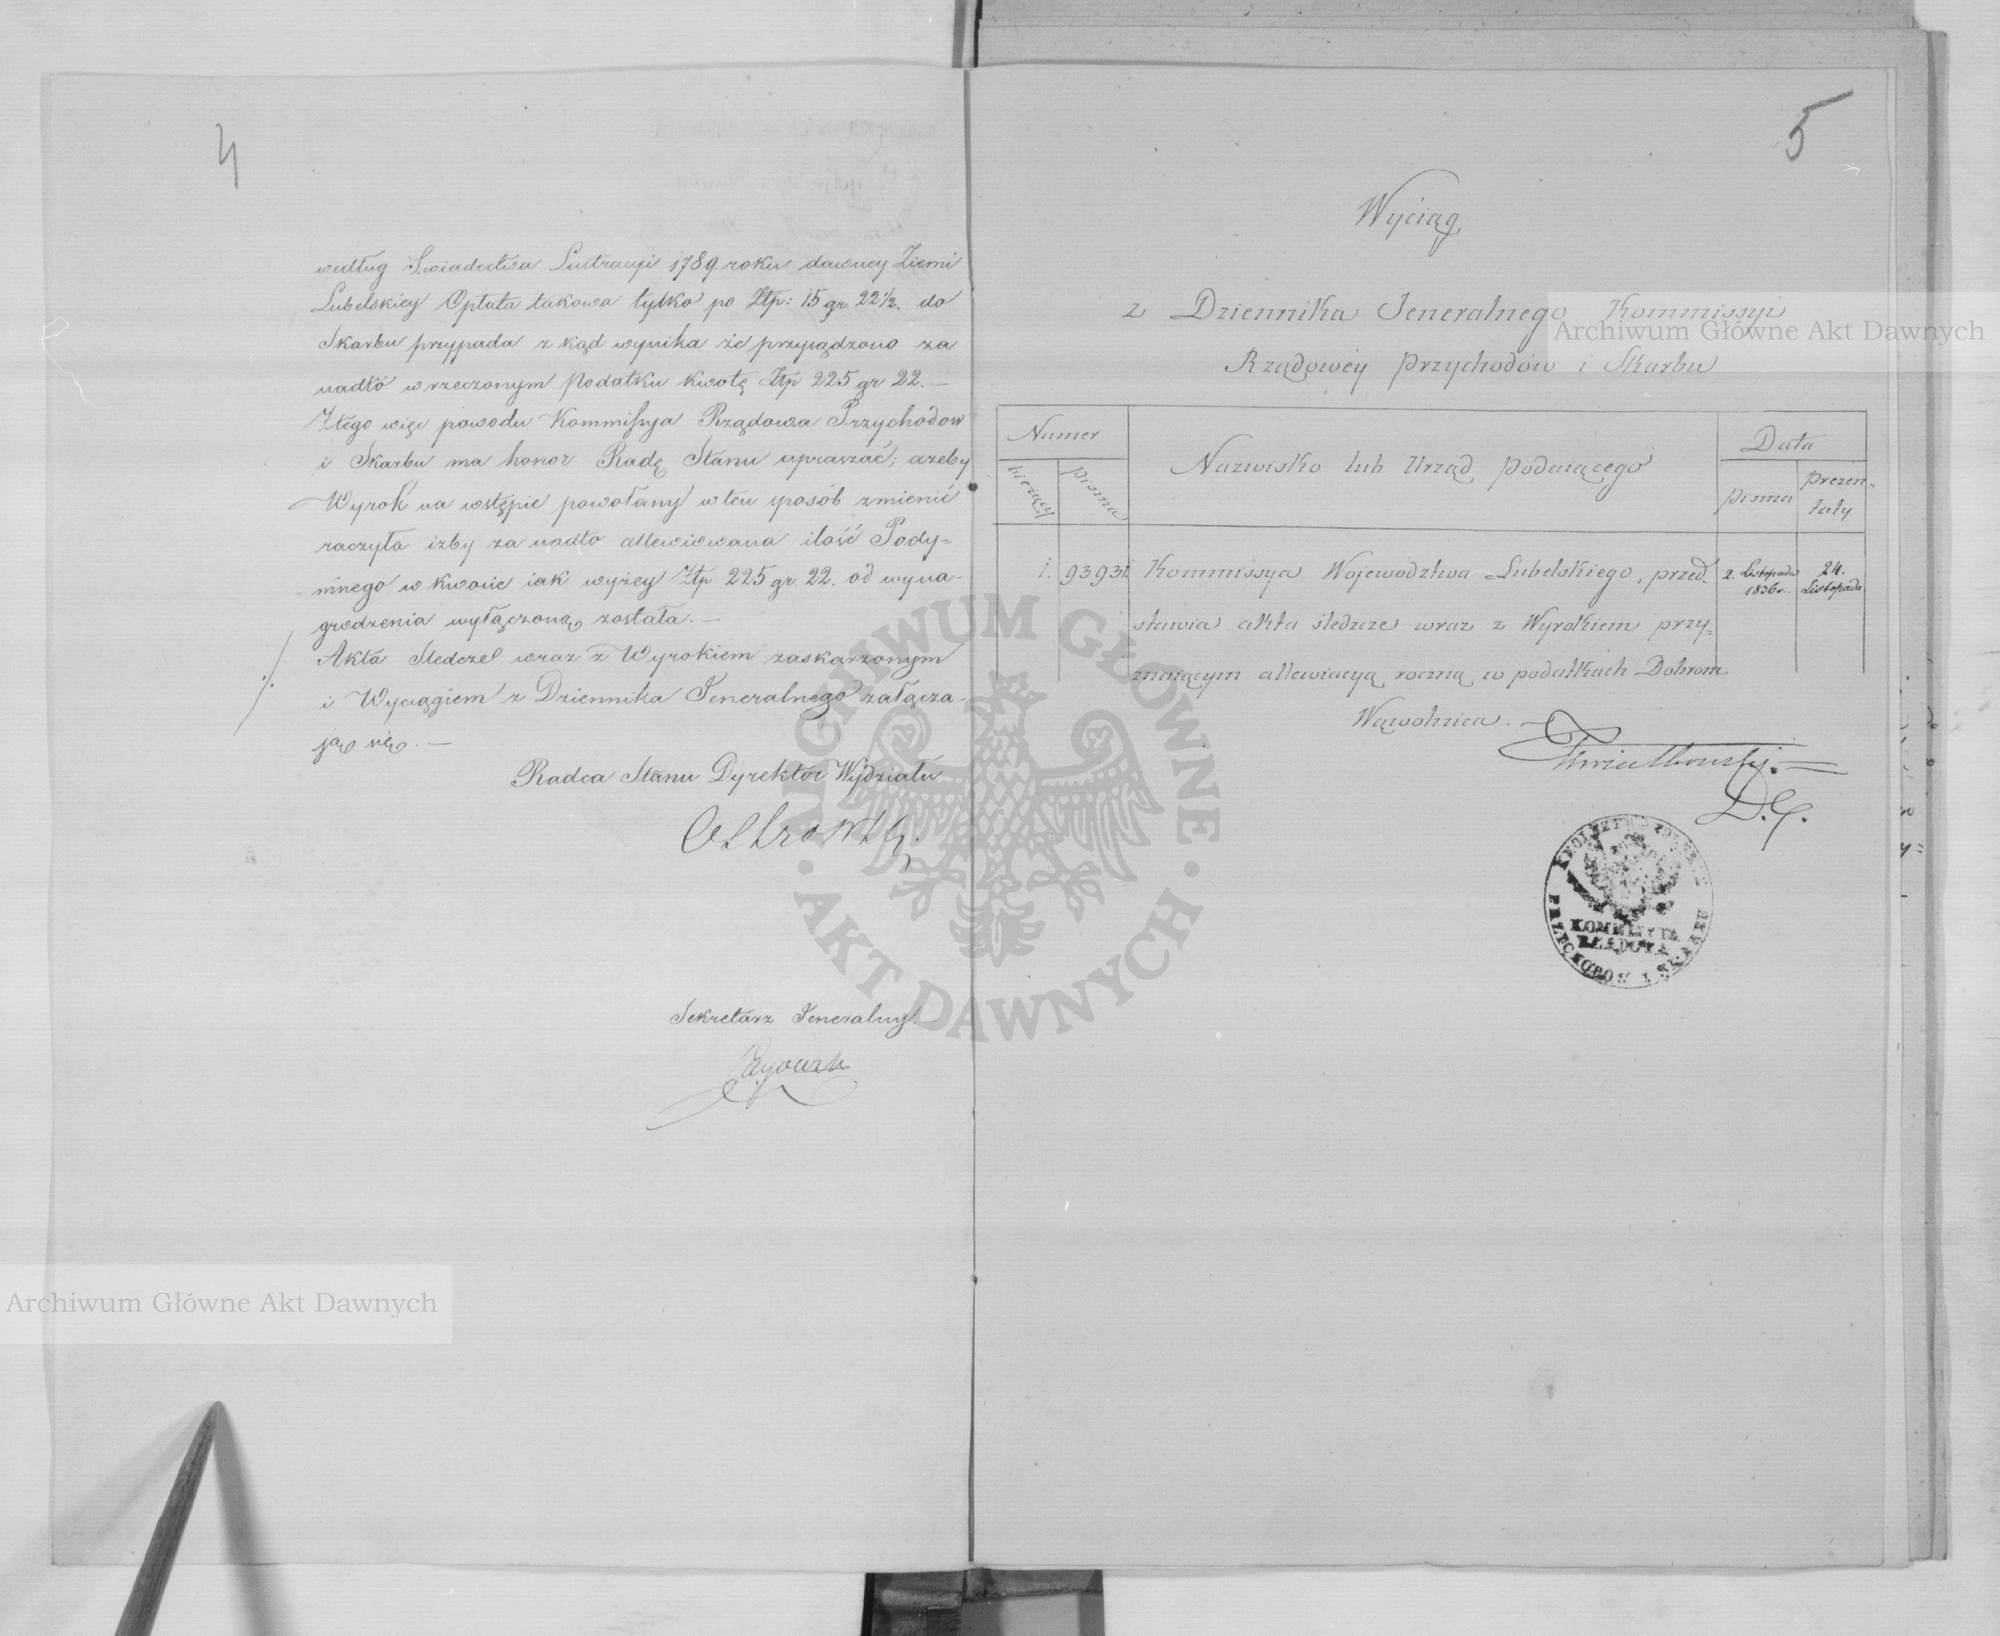 4
według Swiadectwa Lustracyi 1789. roku dawney Ziemi
Lubelskiey Opłata takowa tylko po Złp: 15 gr. 22½. do
Skarbu przypada z kąd wynika że przysądzono za
nadto w rzeczonym Podatku kwotę Złp 225 gr 22. —
Ztego więc powodu Kommissya Rządowa Przychodow
i Skarbu ma honor Radę Stanu upraszać; ażeby
Wyrok na wstępie powołany w ten sposób zmienić
raczyła izby za nadto allewiowana ilość Pody-
mnego w kwocie iak wyżey Złp 225 gr 22. od wyna-
grodzenia wyłączoną została. —
Akta Sledcze wraz z Wyrokiem zaskarzonym
i Wyciągiem z Dziennika Jeneralnego załącza-
ją się. —
Radca Stanu Dyrektor Wydziału
Sekretarz Jeneralny
5
Wyciąg
z Dziennika Jeneralnego Kommissyi
Rządowéy Przychodów i Skarbu
Numer
bieżący
pisma
Nazwisko lub Urząd Podaiącego
Data
pisma
Prezen-
taty
1. 93931. Kommissya Województwa Lubelskiego, przed- 2. Listopada 1836 r. 24. Listopada
stawia akta śledcze wraz z Wyrokiem przy-
znaiącym allewiacyą roczną w podatkach Dobrom
Wąwolnica. —
KROLESTWO POLSKIE
KOMMISSYA
RZĄDOWA
PRZYCHODOW I SKARBU
ARCHIWUM GŁÓWNE
AKT DAWNYCH
Archiwum Główne Akt Dawnych
Archiwum Główne Akt Dawnych